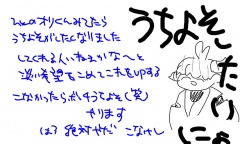 このオリくんみてたら
うちよそがしたくなりました
してくれる人いねぇかなぁと
淡い希望をこめてこれをupする
こなかったらボッチうちよそ(笑)
やります
は?絶対やだ こなけし
うちよそ
たい
にゃ